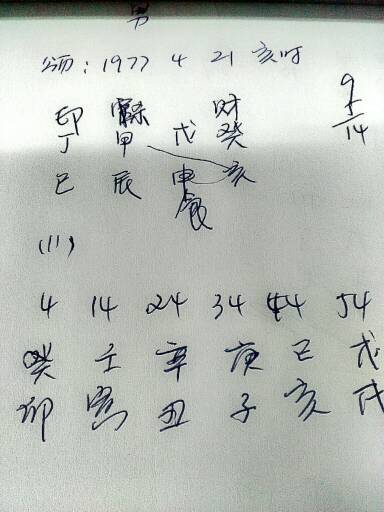 男
公历：1977 4 21 亥时
印 财
丁 甲 戊 癸
巳 辰 申 亥
(11)
4 14 24 34 44 54
癸 壬 辛 庚 己 戊
卯 寅 丑 子 亥 戌